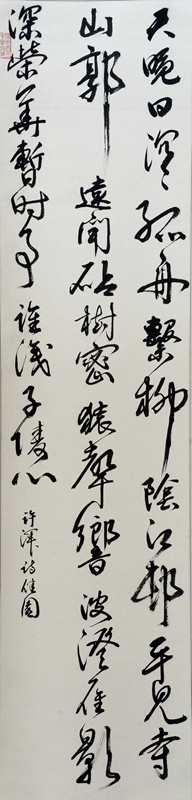 天晚日沉々孤舟繫柳陰江邨平見寺
山郭遠聞砧樹密猿聲響波澄雁影
深榮華暫时事誰識子陵心
许浑诗佳園